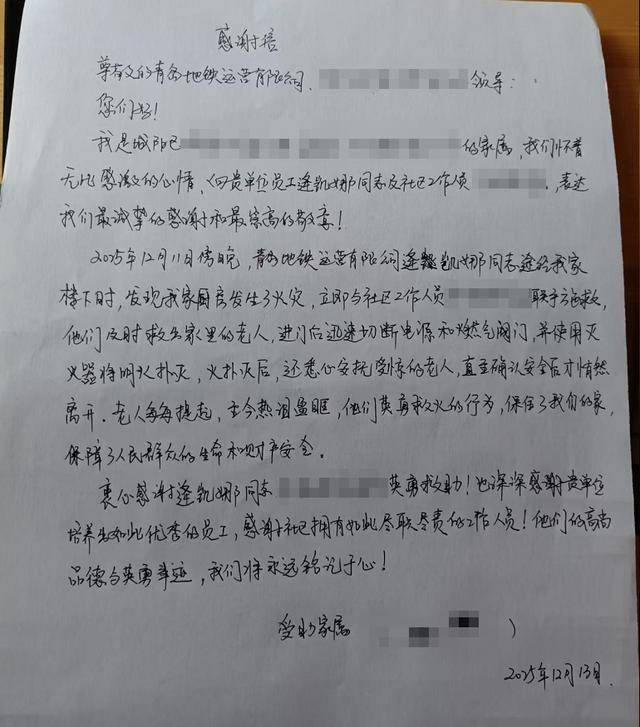 感谢信
尊敬的青岛地铁运营有限公司、领导：
您们好！
我是城阳区的家属，我们怀着
无比感激的心情，向贵单位员工逄凯娜同志及社区工作人员，表达
我们最诚挚的感谢和最崇高的敬意！
2025年12月11日傍晚，青岛地铁运营有限公司逄凯娜同志途经我家
楼下时，发现我家厨房发生了火灾，立即与社区工作人员联手施救，
他们及时救出家里的老人，进门后迅速切断电源和燃气阀门，并使用灭
火器将明火扑灭，火扑灭后，还悉心安抚受惊的老人，直至确认安全后才悄然
离开。老人每每提起，至今热泪盈眶，他们英勇救火的行为，保住了我们的家，
保障了人民群众的生命和财产安全。
衷心感谢逄凯娜同志英勇救助！也深深感谢贵单位
培养出如此优秀的员工，感谢社区拥有如此尽职尽责的工作人员！他们的高尚
品德与英勇事迹，我们将永远铭记于心！
受助家属
2025年12月13日